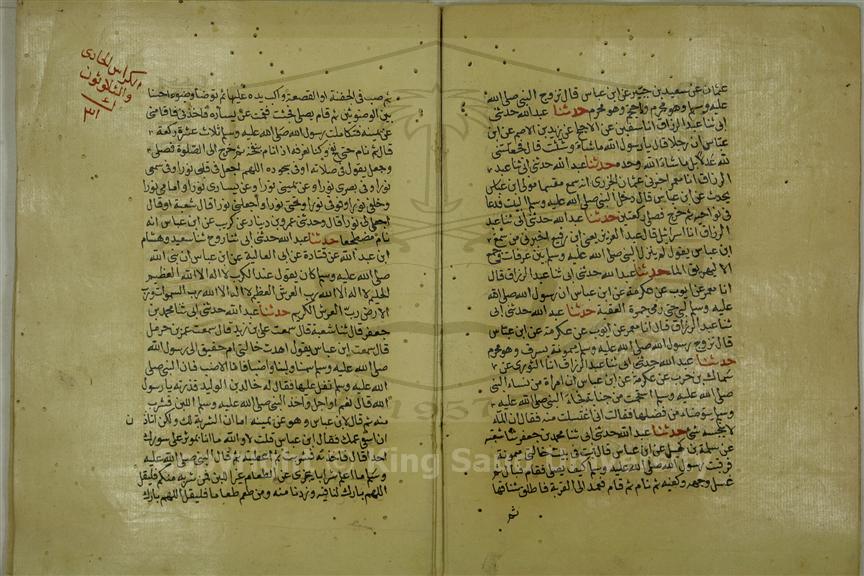 عثمان عن سعيد بن جبير عن ابن عباس قال تزوج النبي صلى الله
عليه وسلم وهو محرم واحتجم وهو محرم حدثنا عبد الله حدثني
ابي ثنا عبد الرزاق انا سفين عن الاجلح عن يزيد بن الاصم عن ابن
عباس ان رجلا قال يا رسول الله ما شاء الله وشئت قال جعلتني
لله عدلا بل ما شاء الله وحده حدثنا عبد الله حدثني ابي ثنا عبد
الرزاق انا معمر اخبرني عثمان الجزري انه سمع مقسما مولى ابن عباس
يحدث عن ابن عباس قال دخل النبي صلى الله عليه وسلم البيت فدعا
في نواحيه ثم خرج فصلى ركعتين حدثنا عبد الله حدثني ابي ثنا عبد
الرزاق انا اسرائيل قال عبد العزيز يعني ابن رفيع اخبرني من سمع
ابن عباس يقول لم ينزل النبي صلى الله عليه وسلم بين عرفات وجمع
الا ليهريق الماء حدثنا عبد الله حدثني ابي ثنا عبد الرزاق قال
انا معمر عن ايوب عن عكرمة عن ابن عباس ان رسول الله صلى الله
عليه وسلم لبى حتى رمى جمرة العقبة حدثنا عبد الله حدثني ابي
ثنا عبد الرزاق قال انا معمر عن ايوب عن عكرمة عن ابن عباس
قال تزوج رسول الله صلى الله عليه وسلم ميمونة بسرف وهو محرم
حدثنا عبد الله حدثني ابي ثنا عبد الرزاق انا الثوري عن
سماك بن حرب عن عكرمة عن ابن عباس ان امراة من نساء النبي
صلى الله عليه وسلم استحمت من جنابة فجاء النبي صلى الله عليه
وسلم يتوضأ من فضلها فقالت اني اغتسلت منه فقال ان الماء
لا ينجسه شيء حدثنا عبد الله حدثني ابي ثنا محمد بن جعفر ثنا شعبة
عن سلمة بن كهيل عن ابن عباس قال بت في بيت خالتي ميمونة
فرقبت رسول الله صلى الله عليه وسلم كيف يصلي فقام فبال ثم
غسل وجهه وكفيه ثم نام ثم قام فعمد الى القربة فاطلق شناقها
ثم
الكراس الحادي
والثلاثون
٣١
ثم صب في الجفنة او القصعة واكب يده عليها ثم توضأ وضوءا حسنا
بين الوضوئين ثم قام يصلي فجئت فقمت عن يساره فاخذني فاقامني
عن يمينه فتكاملت رسول الله صلى الله عليه وسلم ثلاث عشرة ركعة
قال ثم نام حتى نفخ وكنا نعرفه اذا نام بنفخه ثم خرج الى الصلوة فصلى
وجعل يقول في صلاته او في سجوده اللهم اجعل في قلبي نورا وفي سمعي
نورا وفي بصري نورا وعن يميني نورا وعن يساري نورا وامامي نورا
وخلفي نورا وفوقي نورا وتحتي نورا واجعلني نورا قال شعبة او قال
اجعل لي نورا قال وحدثني عمرو بن دينار عن كريب عن ابن عباس انه
نام مضطجعا حدثنا عبد الله حدثني ابي ثنا روح ثنا سعيد وهشام
ابن عبد الله عن قتادة عن ابي العالية عن ابن عباس ان نبي الله
صلى الله عليه وسلم كان يقول عند الكرب لا اله الا الله العظيم
الحليم لا اله الا الله رب العرش العظيم لا اله الا الله رب السموات ورب
الارض رب العرش الكريم حدثنا عبد الله حدثني ابي ثنا محمد بن
جعفر قال ثنا شعبة قال سمعت علي بن زيد قال سمعت عمر بن حرملة
قال سمعت ابن عباس يقول اهدت خالتي ام حفيد الى رسول الله
صلى الله عليه وسلم سمنا ولبنا واضبا فاما الاضب فان النبي صلى
الله عليه وسلم تفل عليها فقال له خالد بن الوليد قذرته يا رسول
الله قال نعم او اجل واخذ النبي صلى الله عليه وسلم اللبن فشرب
منه ثم قال لابن عباس وهو عن يمينه اما ان الشربة لك ولكن اتاذن
ان اسقي عمك فقال ابن عباس قلت لا والله ما انا بمؤثر على سؤرك
احدا قال فاخذته فشربت ثم اعطيته ثم قال النبي صلى الله عليه
وسلم ما اعلم شرابا يجزي عن الطعام غير اللبن فمن شربه منكم فليقل
اللهم بارك لنا فيه وزدنا منه ومن طعم طعاما فليقل اللهم بارك
1957
King Saud